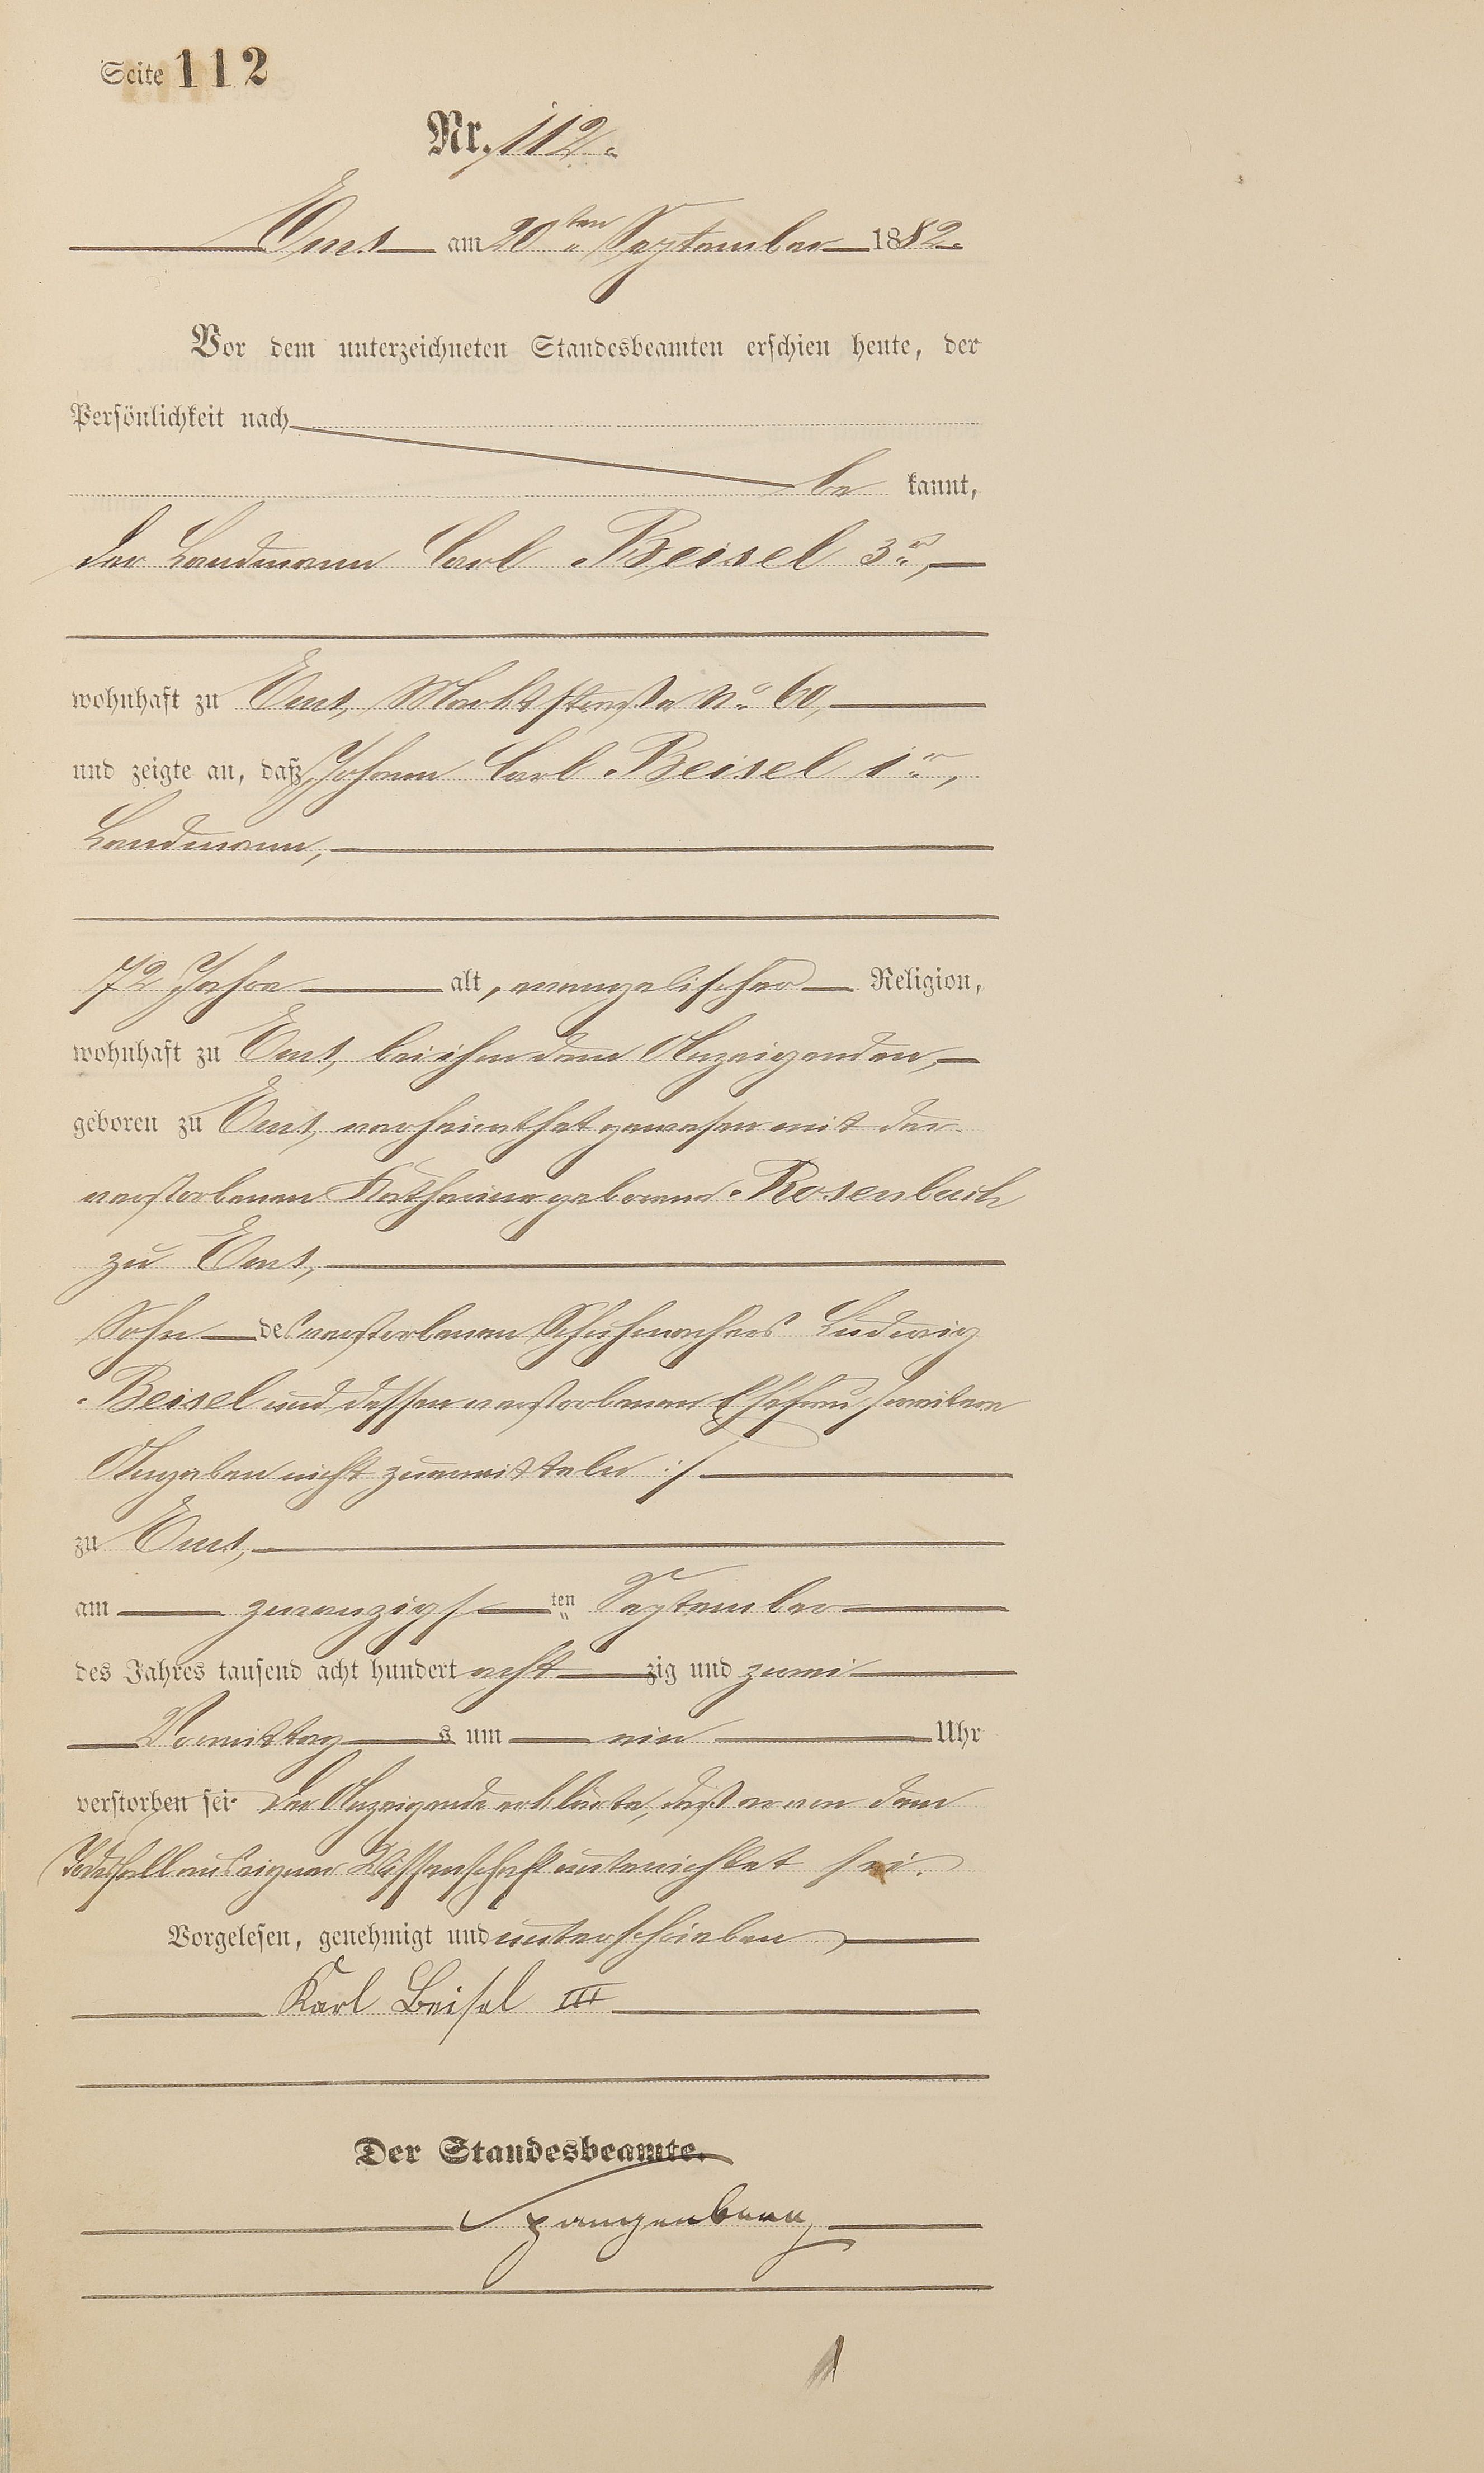 Seite 112
Nr. 112.
Ems am 20ten September 1882.
Vor dem unterzeichneten Standesbeamten erschien heute, der
Persönlichkeit nach
be kannt,
der Landmann Carl Beisel 3r,
wohnhaft zu Ems, Marktstraße No 60,
und zeigte an, daß Johann Carl Beisel 1r,
Landmann,
72 Jahre alt, evangelischer Religion,
wohnhaft zu Ems, bei ihm dem Anzeigenden,
geboren zu Ems, verheirathet gewesen mit der
verstorbenen Katharine geborene Rosenbach
zu Ems,
Sohn des verstorbenen Schuhmachers Ludwig
Beisel und dessen verstorbenen Ehefrau /:weitere
Angaben nicht zu ermitteln :/
zu Ems,
am zwanzigsten September
des Jahres tausend acht hundert acht zig und zwei
Vormittag s um ein Uhr
verstorben sei. Der Anzeigende erklärte, daß er von dem
Todesfall aus eigener Wissenschaft unterrichtet sei.
Vorgelesen, genehmigt und unterschrieben
Karl Beisel III
Der Standesbeamte.
Spangenberg